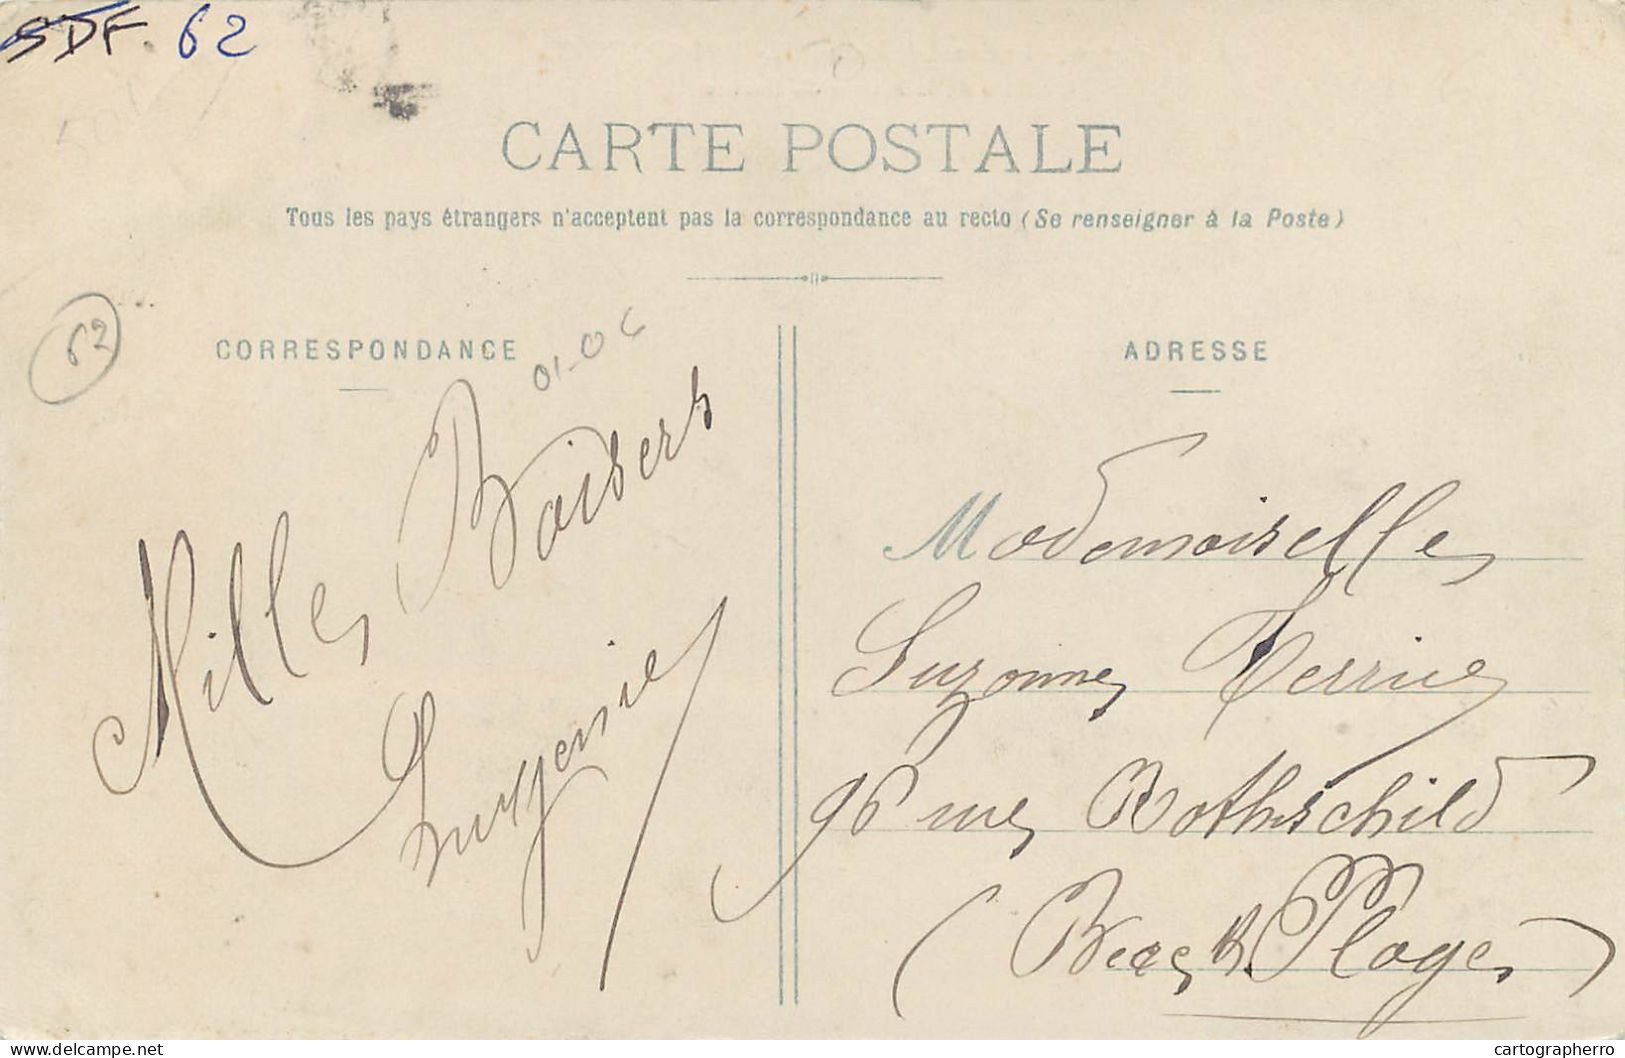 SDF. 62
CARTE POSTALE
Tous les pays étrangers n'acceptent pas la correspondance au recto (Se renseigner à la Poste)
62
CORRESPONDANCE
01-06
Mille Baisers
Eugenie
ADRESSE
Mademoiselle
Suzanne
96 rue Rothschild
(Berck Plage)
delcampe.net
cartographerro